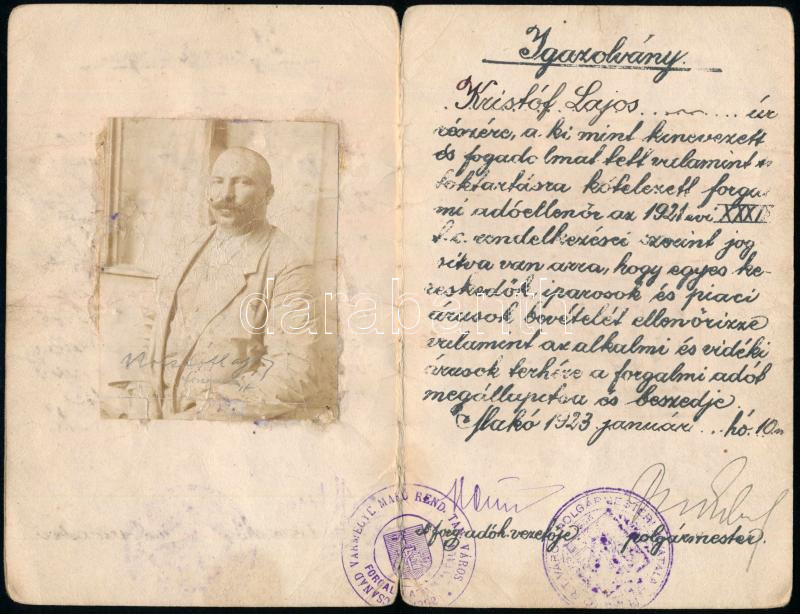 Igazolvány.
Kristóf Lajos úr
részére, a ki mint kinevezett
és fogadalmat tett valamint
titoktartásra kötelezett forgal-
mi adóellenőr az 1921 évi XXXIX
t.c. rendelkezései szerint jogo-
sítva van arra, hogy egyes ke-
reskedők, iparosok és piaci
árusok bevételét ellenőrizze
valamint az alkalmi és vidéki
árusok terhére a forgalmi adót
megállapítsa és beszedje.
Makó 1923 január hó 10n
a forg. adók. vezetője
polgármester.
CSANÁD VÁRMEGYE MAKÓ REND. TAN. VÁROS
darabanth